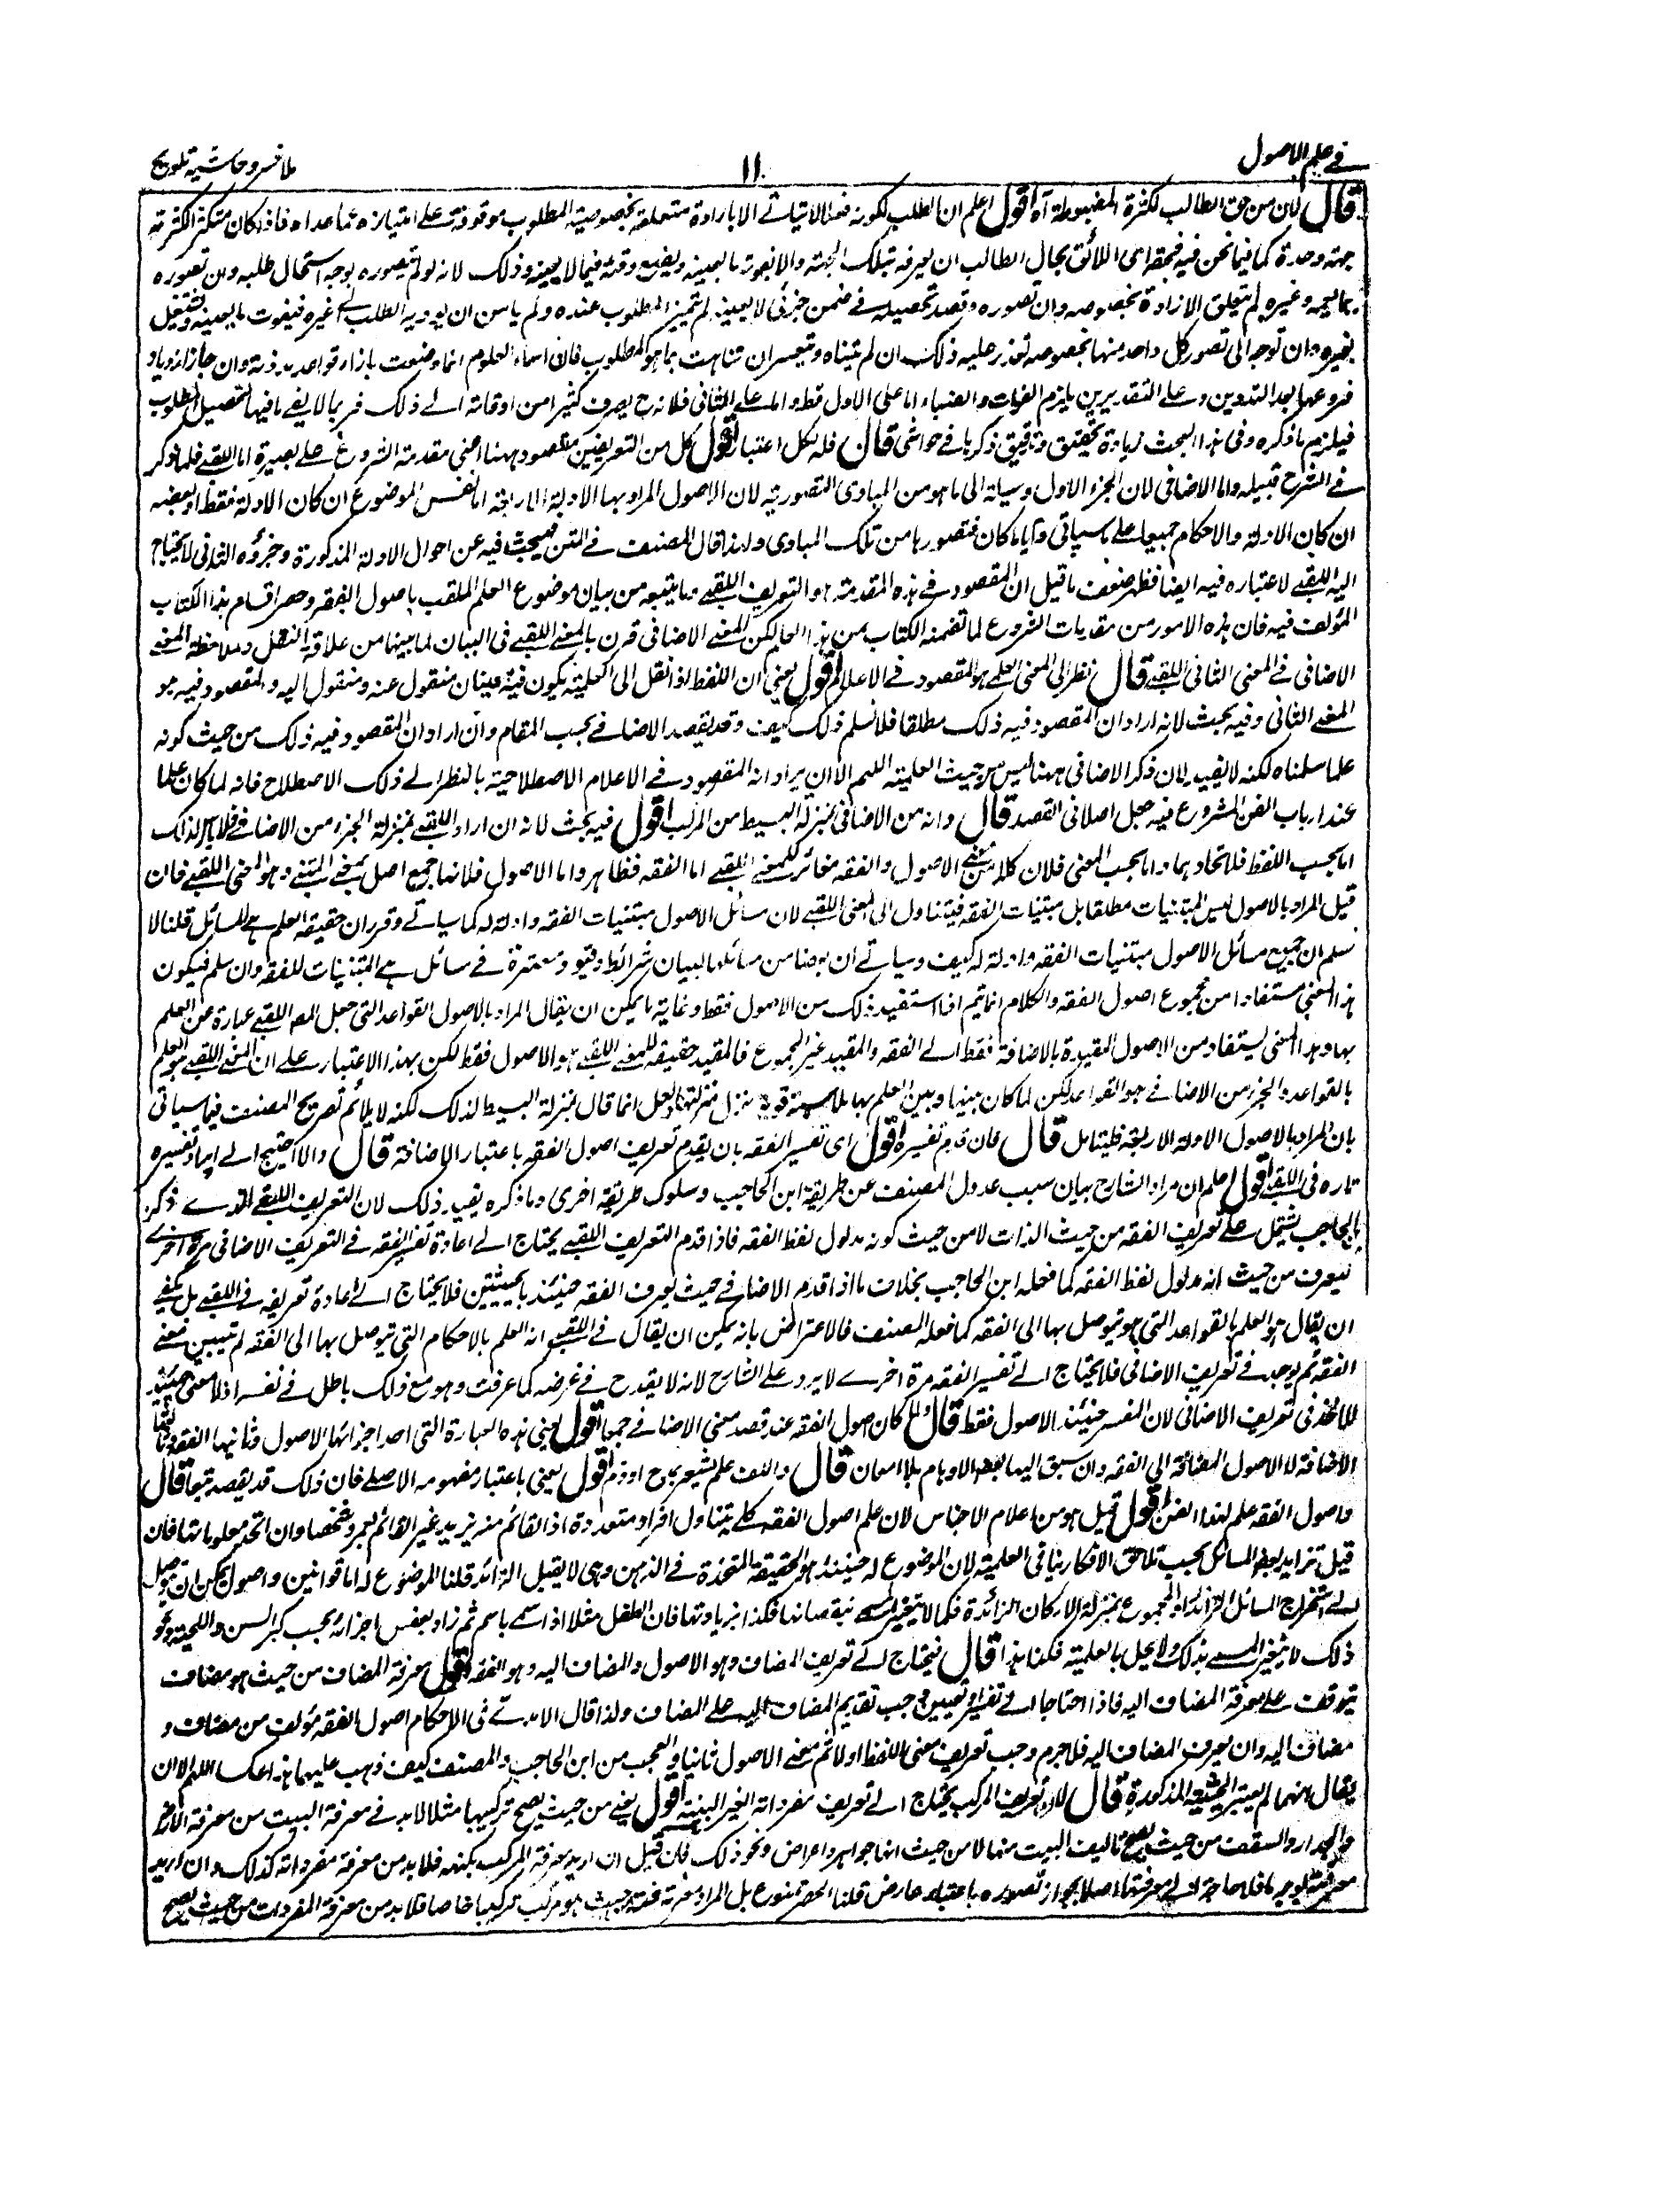 في علم الاصول
١١
ملا خسرو حاشية تلويح
قال لان من حق الطالب لكثرة المضبوطة آه اقول اعلم ان الطلب لكونه فعلا لا يتاتى الا بارادة متعلقة بخصوصية المطلوب موقوفة على امتيازه عما عداه فاذا كان متكثرا لكثرته
جهة وحدة كما فيما نحن فيه فحقه اى اللائق بحال الطالب ان يعرفه بتلك الجهة والا يفوت ما يعينه ويضيع وقته فيما لا يعينه وذلك لانه لو لم يتصوره بوجه استحال طلبه وان تصوره
بما يعمه وغيره لم يتعلق الارادة بخصوصه وان تصوره وقصد تحصيله في ضمن جزئي لا يعينه لم يتميز المطلوب عنده ولم يامن ان يوديه الطلب الى غيره فيفوت ما يعينه ويشتغل
بغيره وان توجه الى تصور كل واحد منها بخصوصه تعذر عليه ذلك ان لم يتناه وتعسر ان تناهت بما هو المطلوب فان اسماء العلوم انما وضعت بازاء قواعد مدونة وان جاز ازدياد
فروعها بعد التدوين وعلى التقديرين يلزم الفوات والضياع اما على الاول فظ واما على الثاني فلانه ح يصرف كثيرا من اوقاته الى ذلك فربما لا يفي ما فيها لتحصيل المطلوب
فيلزم ما ذكره وفى هذا البحث زيادة تحقيق وتدقيق ذكرناها في حواشي قال فله بكل اعتبار اقول كل من التعريفين مقصود ههنا اعنى مقدمة الشروع على بصيرة اما اللقبي فلما ذكر
في الشرح قبيله واما الاضافى لان الجزء الاول وسيلة الى ما هو من المبادى التصورية لان الاصول المراد بها الادلة الاربعة اما نفس الموضوع ان كان الادلة فقط او بعضه
ان كان الادلة والاحكام جميعا على ما سياتى وايا ما كان فتصورها من تلك المبادى ولهذا قال المصنف في المتن فيبحث فيه عن احوال الادلة المذكورة وجزؤه الثانى لا يحتاج
اليه اللقبي لاعتباره فيه ايضا فظهر ضعف ما قيل ان المقصود في هذه المقدمة هو التعريف اللقبي وما يتبعه من بيان موضوع العلم الملقب باصول الفقه وحصر اقسام هذا الكتاب
المؤلف فيه فان هذه الامور من مقدمات الشروع لما تضمنه الكتاب من هذا العلم لكن المعنى الاضافى قرن بالمعنى اللقبي فى البيان لما بينهما من علاقة النقل وملاحظة المعنى
الاضافى في المعنى الثانى اللقبي قال نظرا الى المعنى العلمي هو المقصود في الاعلام اقول يعنى ان اللفظ اذا نقل الى العلمية يكون فيه معنيان منقول عنه ومنقول اليه والمقصود فيه هو
المعنى الثانى وفيه بحث لانه ان اراد ان المقصود فيه ذلك مطلقا فلا نسلم ذلك كيف وقد يقصد الاضافي بحسب المقام وان اراد ان المقصود فيه ذلك من حيث كونه
علما سلمناه لكنه لا يفيد لان ذكر الاضافى ههنا ليس من حيث العلمية اللهم الا ان يراد انه المقصود في الاعلام الاصطلاحية بالنظر الى ذلك الاصطلاح فانه لما كان علما
عند ارباب الفن المشروع فيه جعل اصلا فى القصد قال وانه من الاضافى بمنزلة البسيط من المركب اقول فيه بحث لانه ان اراد اللقبي بمنزلة الجزء من الاضافي فلا يظهر لذلك
اما بحسب اللفظ فلاتحادهما واما بحسب المعنى فلان كلا من معنى الاصول والفقه مغائر للمعنى اللقبي اما الفقه فظاهر واما الاصول فلانها جمع اصل بمعنى المبتنى وهو المعنى اللقبي فان
قيل المراد بالاصول ليس المبتنيات مطلقا بل مبتنيات الفقه فيتناول الى المعنى اللقبي لان مسائل الاصول مبتنيات الفقه وادلة له كما سياتي وقرر ان حقيقة العلم هي المسائل قلنا لا
نسلم ان جميع مسائل الاصول مبتنيات الفقه وادلة له كيف وسياتي ان بعضا من مسائلها لبيان شرائط وقيود معتبرة في مسائل هي المبتنيات للفقه وان سلم فيكون
هذا المعنى مستفادا من مجموع اصول الفقه والكلام انما يتم اذا استفيد ذلك من الاصول فقط وغاية ما يمكن ان يقال المراد بالاصول القواعد التى جعل المعنى اللقبي عبارة عن العلم
بها وهذا المعنى يستفاد من الاصول المقيدة بالاضافة فقط الى الفقه والمقيد غير المجموع فالمقيد حقيقة للمعنى اللقبي هو الاصول فقط لكن بهذا الاعتبار على ان المعنى اللقبي هو العلم
بالقواعد والجزء من الاضافي هو القواعد لكن لما كان بينها وبين العلم بها ملابسة قوية نزل منزلتها ولعل انما قال بمنزلة البسيط لذلك لكنه لا يلائم تصريح المصنف فيما سياتى
بان المراد بالاصول الادلة الاربعة فليتامل قال فان قدم تفسيره اقول اى تفسير الفقه بان يقدم تعريف اصول الفقه باعتبار الاضافة قال والا احتيج الى ايراد تفسيره
تارة فى اللقبي اقول اعلم ان مراد الشارح بيان سبب عدول المصنف عن طريقة ابن الحاجب وسلوك طريقة اخرى وما ذكره يفيد ذلك لان التعريف اللقبي الذي ذكره
ابن الحاجب يشتمل على تعريف الفقه من حيث الذات لا من حيث كونه مدلول لفظ الفقه فاذا قدم التعريف اللقبي يحتاج الى اعادة تفسير الفقه في التعريف الاضافى مرة اخرى
ليعرف من حيث انه مدلول لفظ الفقه كما فعله ابن الحاجب بخلاف ما اذا قدم الاضافي حيث يعرف الفقه حينئذ بالحيثيتين فلا يحتاج الى اعادة تعريفه في اللقبي بل يكفي
ان يقال هو العلم بالقواعد التي هو يتوصل بها الى الفقه كما فعله المصنف فالاعتراض بانه يمكن ان يقال في اللقبي انه العلم بالاحكام التي يتوصل بها الى الفقه لم يتبين معنى
الفقه ثم يوجد في تعريف الاضافى فلا يحتاج الى تفسير الفقه مرة اخرى لا يرد على الشارح لانه لا يقدح في غرضه كما عرفت وهو مع ذلك باطل في نفسه اذ لا معنى حينئذ
للاخذ فى تعريف الاضافى لان المفسر حينئذ الاصول فقط قال ولما كان اصول الفقه عند قصد معنى الاضافي جمعا اقول يعني هذه العبارة التى احد اجزائها الاصول وثانيها الفقه وثالثها
الاضافة لا الاصول المضافة الى الفقه وان سبق اليها بعض الاوهام بلا امعان قال واللقب علم يشعر بمدح او ذم اقول يعنى باعتبار مفهومه الاصلي فان ذلك قد يقصد تبعا قال
واصول الفقه علم لهذا الفن اقول قيل هو من اعلام الاجناس لان علم اصول الفقه كلي يتناول افرادا متعددة اذ القائم منه بزيد غير القائم بعمرو شخصا وان اتحد معلوماتها فان
قيل تزايد بعض المسائل بحسب تلاحق الافكار ينافى العلمية لان الموضوع له حينئذ هو الحقيقة المتحدة في الذهن وهى لا يقبل الزائد قلنا الموضوع له اما قوانين واصول يمكن ان يتوصل
الى استخراج المسائل الزائدة او المجموع بمنزلة الاركان الزائدة فكما لا يتغير المسمى بنقصانها فكذا بزيادتها فان الطفل مثلا اذا سمي باسم ثم زاد بعض اجزائه بحسب كبر السن واللحية ونحو
ذلك لا يتغير المسمى بذلك ولا يخل بالعلمية فكذا هذا قال فيحتاج الى تعريف المضاف وهو الاصول والمضاف اليه وهو الفقه اقول معرفة المضاف من حيث هو مضاف
يتوقف على معرفة المضاف اليه فاذا احتاجا الى تفسير وتعيين وجب تقديم المضاف اليه على المضاف ولذا قال الآمدي فى الاحكام اصول الفقه مؤلف من مضاف و
مضاف اليه وان يعرف المضاف اليه فلا جرم وجب تعريف معنى اللفظ اولا ثم معنى الاصول ثانيا والعجب من ابن الحاجب والمصنف كيف ذهب عليهما هذا عكسا اللهم الا ان
يقال انهما لم يعتبر الحيثية المذكورة قال لان تعريف المركب يحتاج الى تعريف مفرداته الغير البينة اقول يعني من حيث يصح تركيبها مثلا لا بد في معرفة البيت من معرفة الآجر
والجدار والسقف من حيث يصح تاليف البيت منها لا من حيث انها جواهر واعراض ونحو ذلك فان قيل ان اريد معرفة المركب بكنهه فلا بد من معرفة مفرداته كذلك وان اريد
معرفته بوجه ما فلا حاجة الى معرفتها اصلا لجواز تصوره باعتبار عارض قلنا الحصر ممنوع بل المراد معرفة حقيقته من حيث هو مركب تركيبا خاصا فلا بد من معرفة المفردات من حيث يصح